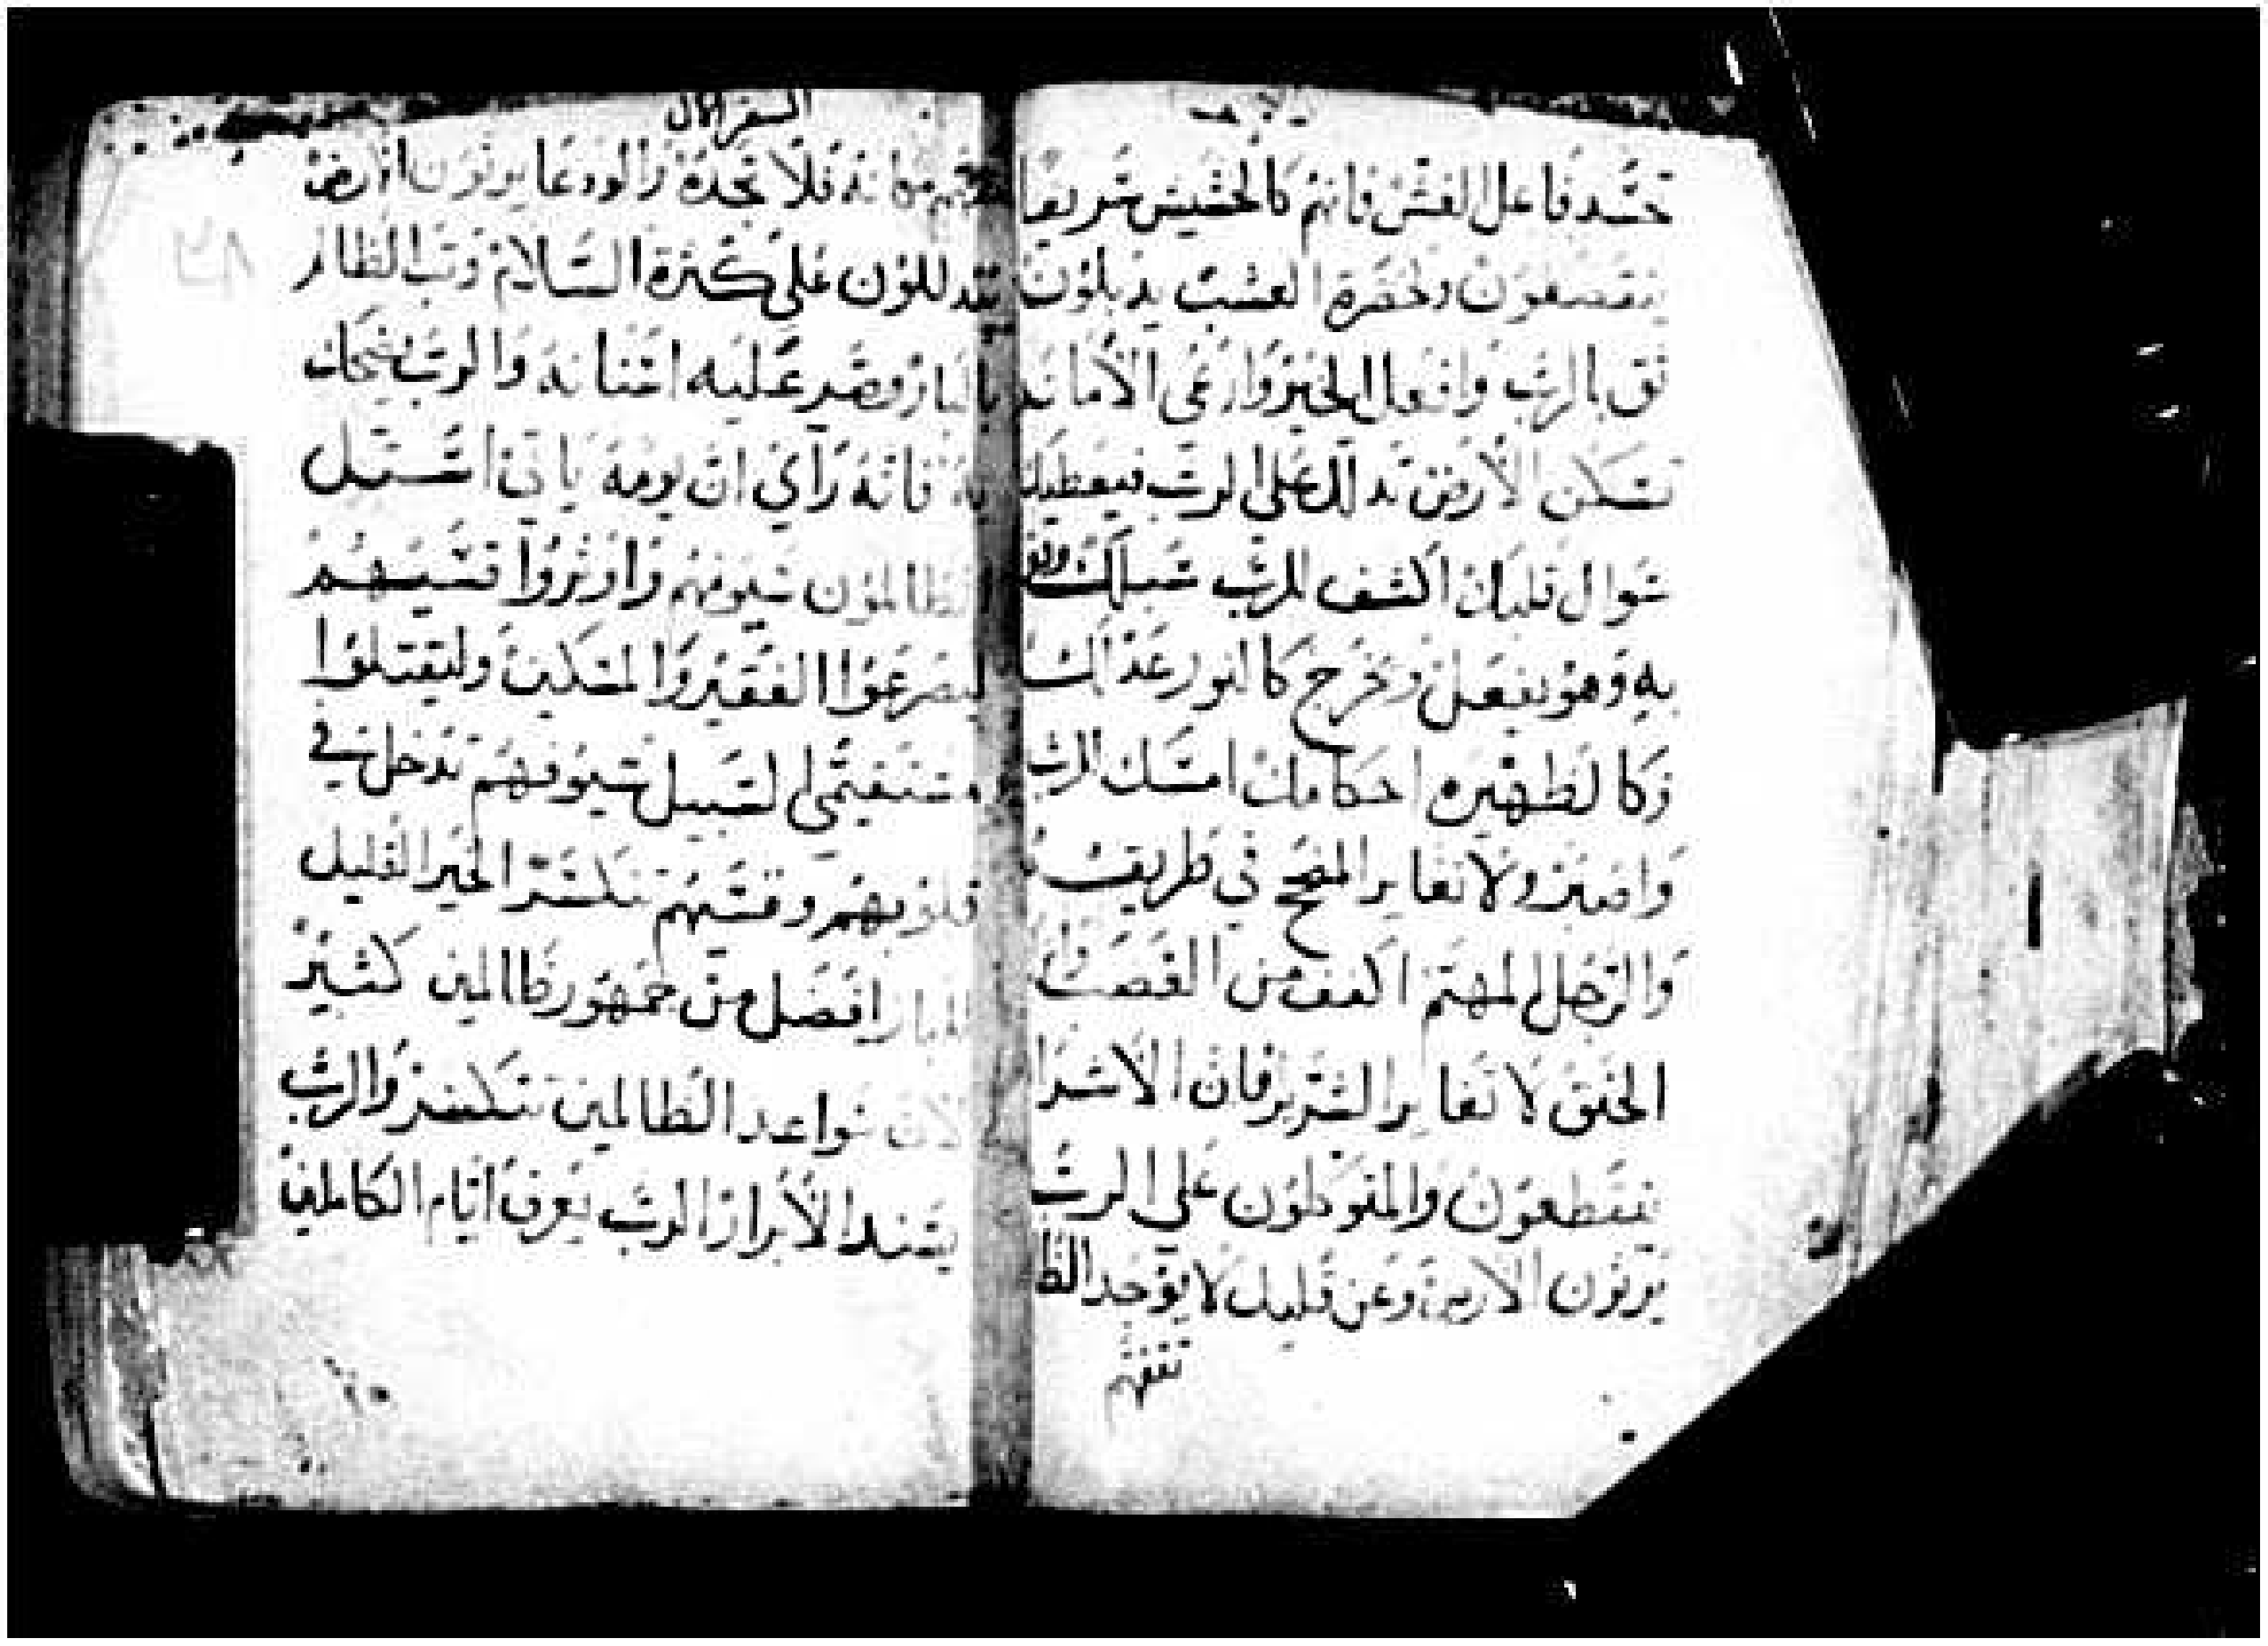 تحسد فاعل الغش فانهم كالحشيش سريعا
ينقصفون وكخضرة العشب يدبلون
ثق بالرب وافعل الخير وارعى الامانه
تسكن الارض تدلل على الرب فيعطيك
سوال قلبك اكشف للرب سبيلك وثق
به وهو يفعل ويخرج كالنور عدالتك
وكالظهيره احكامك امسك الرب
واصبر ولا تغاير المنجح في طريقه
والرجل المهتم اكفف من الغضب
الحنق لا تغاير الشرير فان الاشرار
ينقطعون والمتوكلون على الرب
يرثون الارض وعن قليل لا يوجد الظا
السفر الاول
مكانه فلا تجده والودعا يرثون الارض
يتدللون على كثرة السلام وثب الظالم
بالبار وصر عليه اسنانه والرب يضحك
به فانه راي ان يومه ياتي استل
الظالمون سيوفهم واوتروا قسيهم
ليصرعوا الفقير والمسكين وليقتلوا
مستقيمي السبيل سيوفهم تدخل في
قلوبهم وقسيهم تنكسر الخير القليل
للبار افضل من جمهور ظالمين كثير
لان سواعد الظالمين تنكسر والرب
يسند الابرار الرب يعرف ايام الكاملين